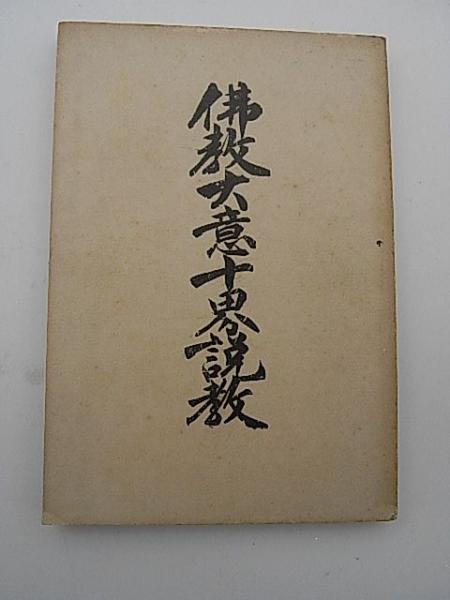 佛教大意十界説教